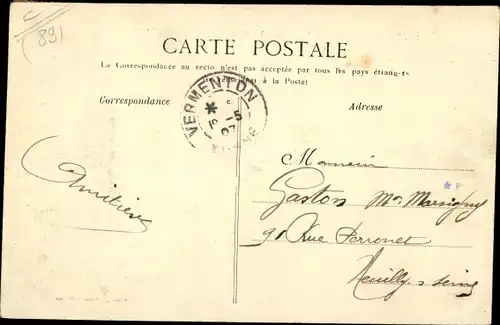 (89)
CARTE POSTALE
La Correspondance au recto n'est pas acceptée par tous les pays étrangers
à la Poste)
Correspondance
Adresse
VERMENTON
Amitiés
Monsieur
Gaston Marsigny
91 Rue Perronet
Neuilly s Seine